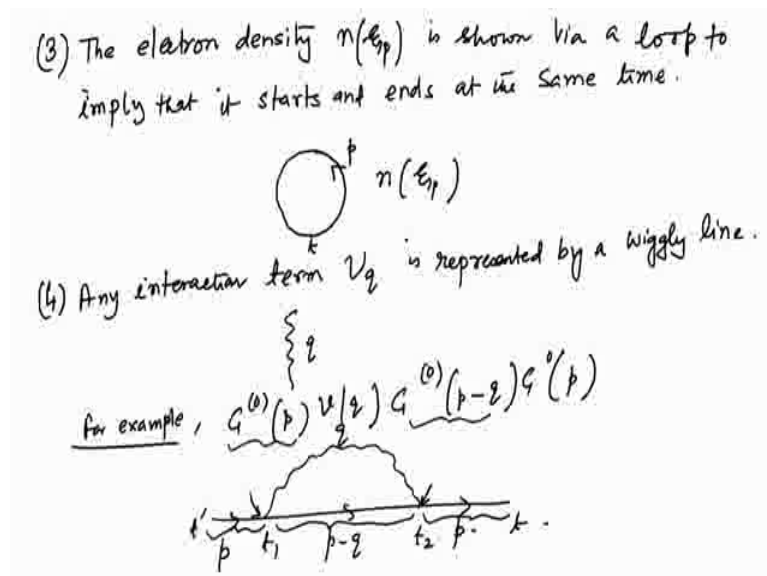 (3) The electron density n(ξp) is shown via a loop to
imply that it starts and ends at the same time.
p
n(ξp)
t
(4) Any interaction term Vq is represented by a wiggly line.
q
For example, G^(0)(p) V(q) G^(0)(p-q) G^0(p)
q
t' p t1 p-q t2 p. t.